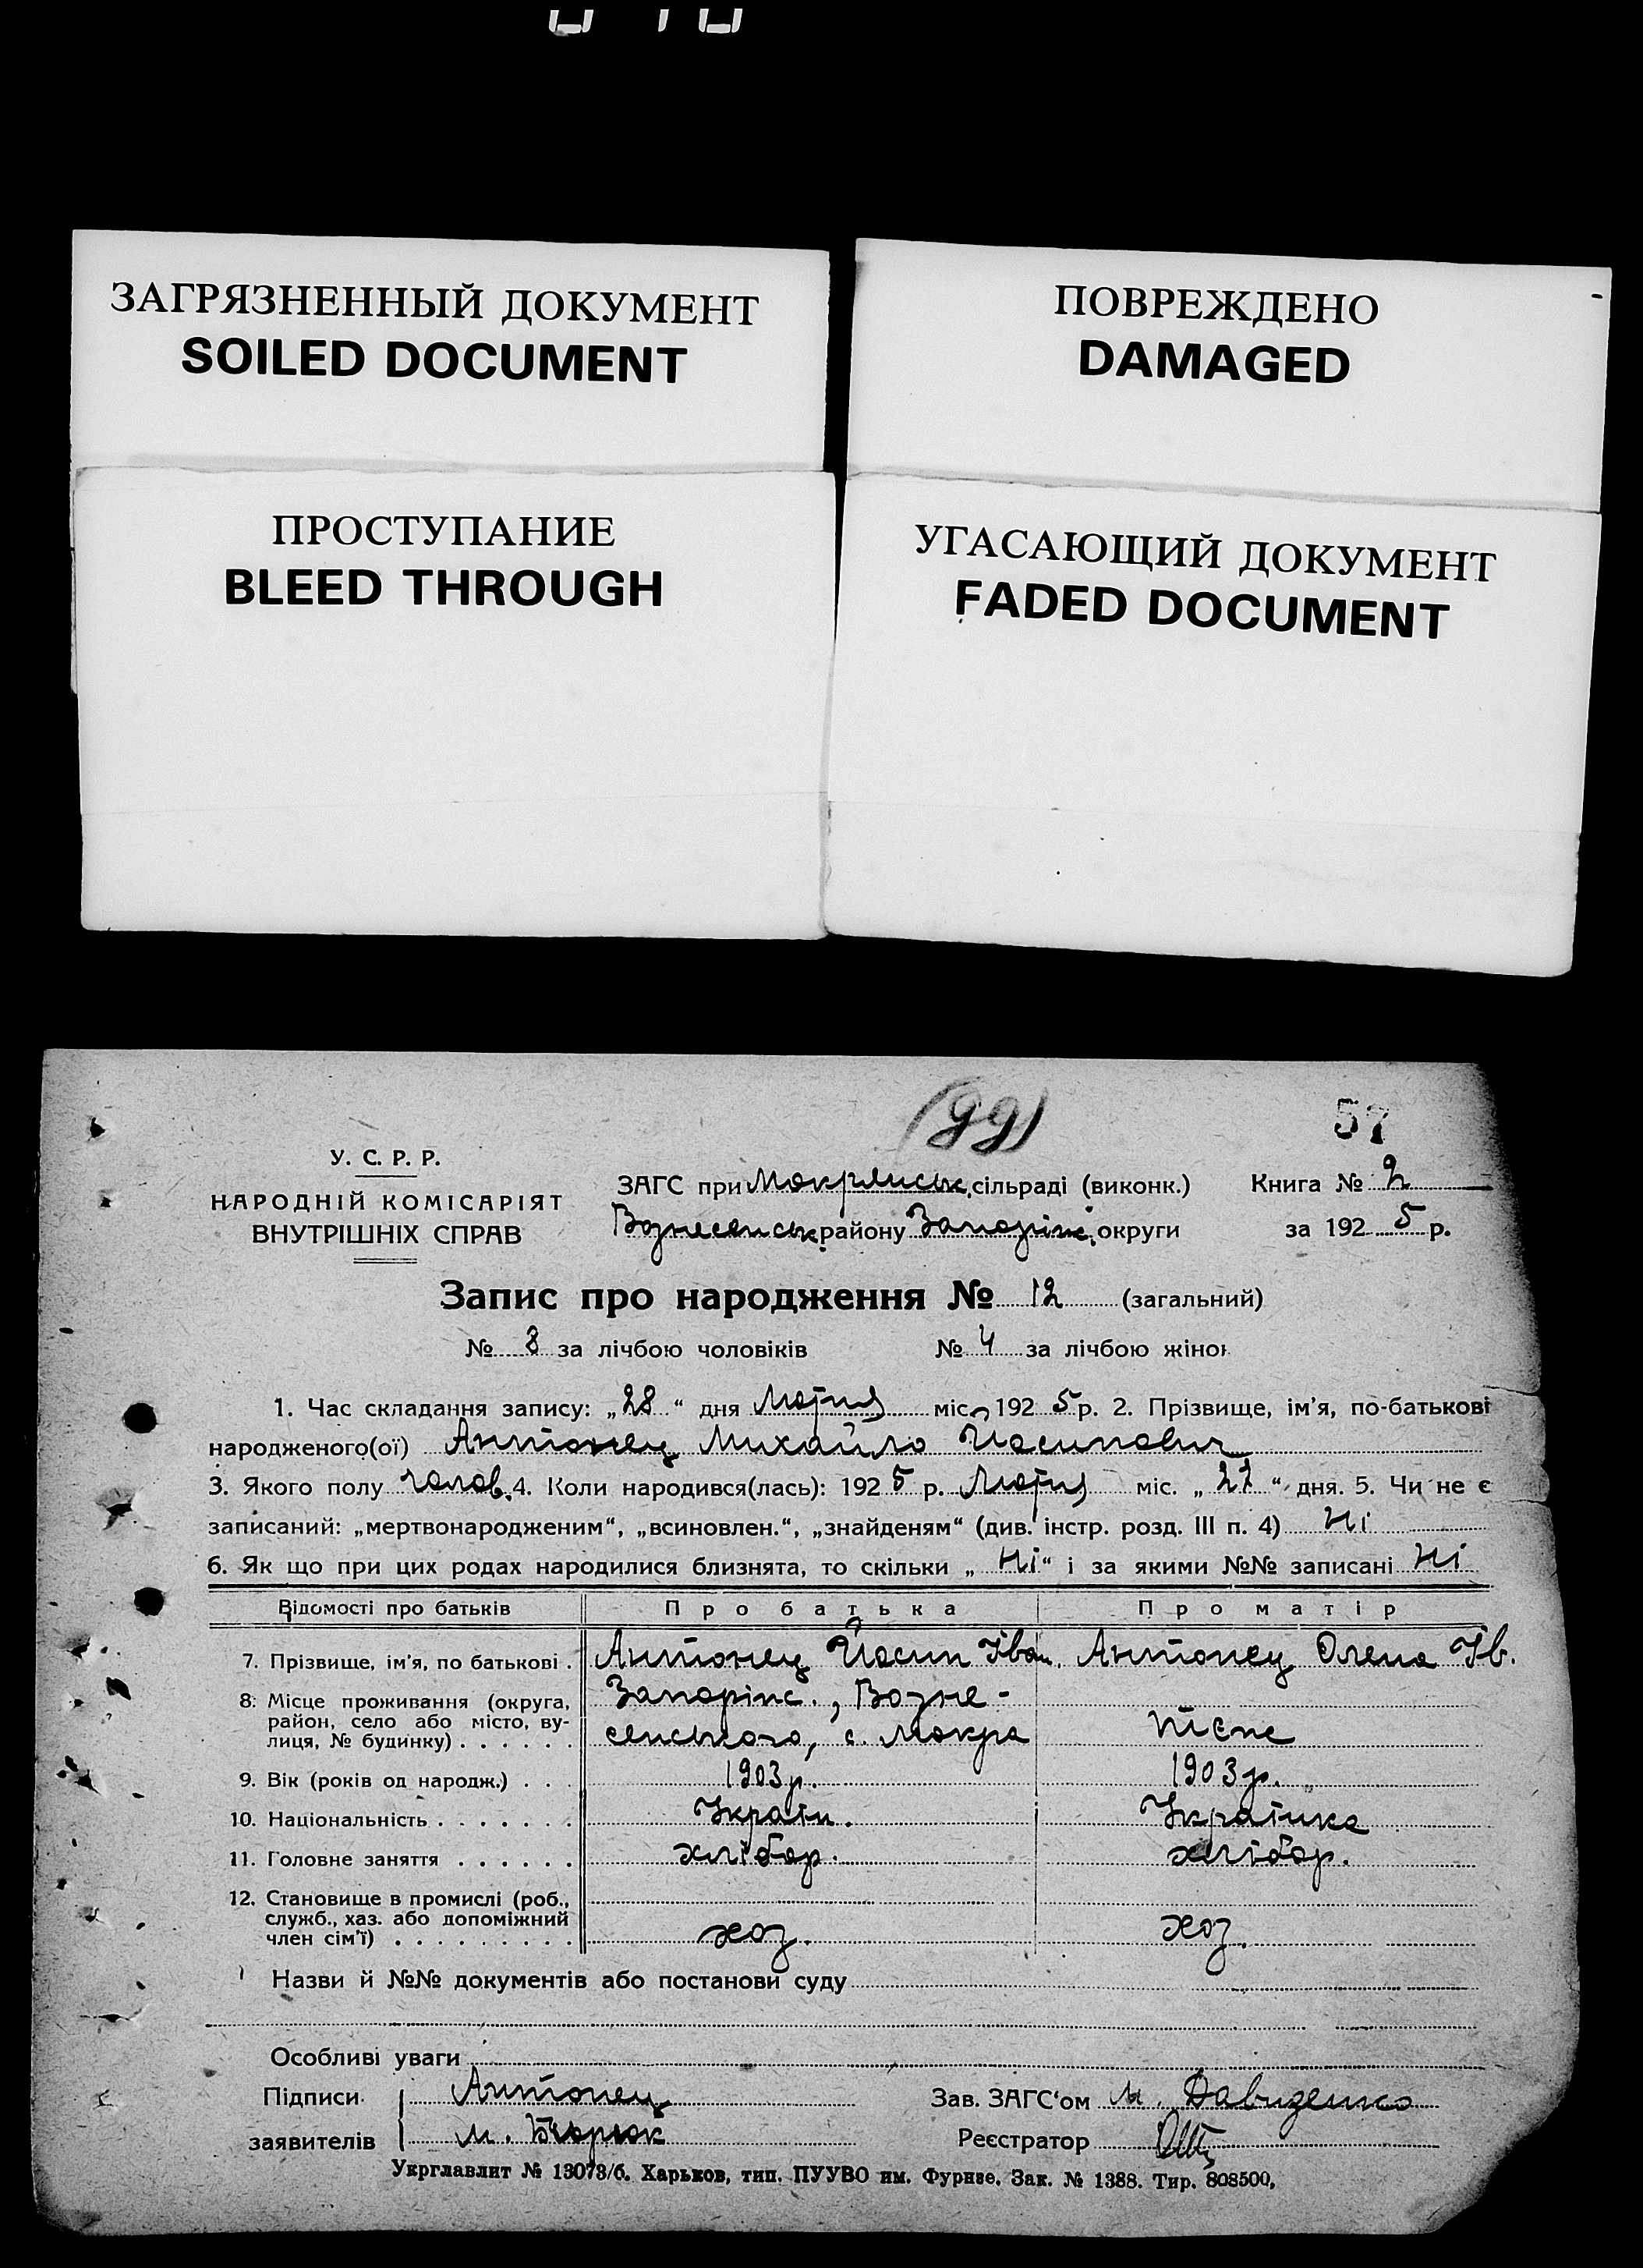 ЗАГРЯЗНЕННЫЙ ДОКУМЕНТ
SOILED DOCUMENT
ПОВРЕЖДЕНО
DAMAGED
ПРОСТУПАНИЕ
BLEED THROUGH
УГАСАЮЩИЙ ДОКУМЕНТ
FADED DOCUMENT
57
У. С. Р. Р.
НАРОДНІЙ КОМІСАРІЯТ
ВНУТРІШНІХ СПРАВ
ЗАГС при Мокрянськ. сільраді (виконк.)
Вознесенськ. району Запоріж. округи
Книга № 2
за 1925 р.
Запис про народження № 12 (загальний)
№ 8 за лічбою чоловіків № 4 за лічбою жінок
1. Час складання запису: „28“ дня міс. 1925 р. 2. Прізвище, ім'я, по-батькові
народженого(ої) Антонец Михайло Йосипович
3. Якого полу чолов. 4. Коли народився(лась): 1925 р. міс. „27“ дня. 5. Чи не є
записаний: „мертвонародженим“, „всиновлен.“, „знайденям“ (див. інстр. розд. III п. 4) Ні
6. Як що при цих родах народилися близнята, то скільки „Ні“ і за якими №№ записані Ні
Відомості про батьків Про батька Про матір
7. Прізвище, ім'я, по батькові . Антонец Йосип Іван. Антонец Олена Ів.
8. Місце проживання (округа, Запоріж., Возне-
район, село або місто, ву- сенського, с. Мокра теж
лиця, № будинку) . . . . . .
9. Вік (років од народж.) . . . 1903 р. 1903 р.
10. Національність . . . . . . . Україн. Українка
11. Головне заняття . . . . . . хлібор. хлібор.
12. Становище в промислі (роб.,
служб., хаз. або допоміжний
член сім'ї) . . . . . . . . . хоз. хоз.
Назви й №№ документів або постанови суду
Особливі уваги
Підписи Антонец Зав. ЗАГС'ом М. Давиденко
заявителів М. Реєстратор
Укрглавлит № 13073/б. Харьков, тип. ПУУВО им. Фрунзе. Зак. № 1388. Тир. 808500,